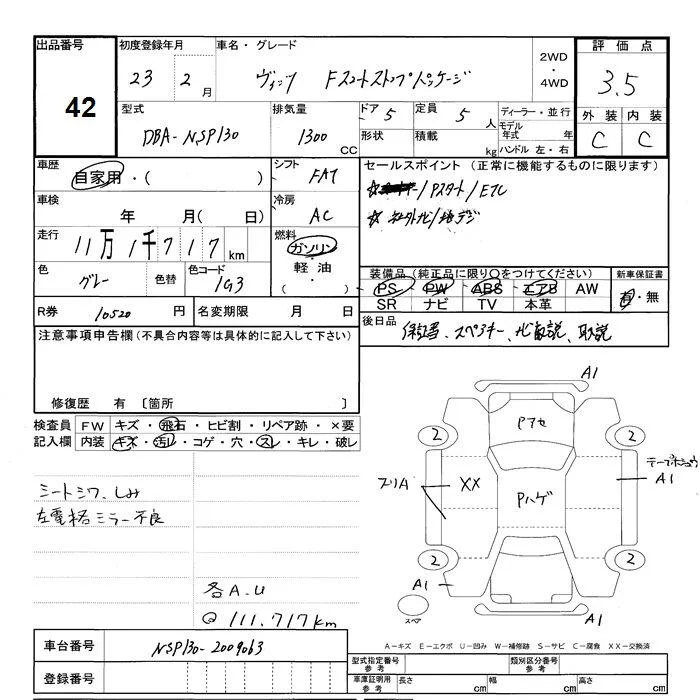 出品番号 42
初度登録年月 23 2月
車名・グレード ヴィッツ Fスマートストップパッケージ
2WD・4WD
評価点 3.5
外装 C 内装 C
型式 DBA-NSP130
排気量 1300 CC
ドア 5
形状
定員 5人
積載 kg
ディーラー・並行
モデル年式 年
ハンドル 左・右
車歴 自家用・( )
シフト FAT
車検 年 月( 日)
冷房 AC
走行 11万1千717km
燃料 ガソリン・軽油
色 グレー 色替
色コード 1G3
R券 10520円
名変期限 月 日
セールスポイント (正常に機能するものに限ります)
/Pスタート/ETC
社外ナビ/地デジ
装備品 (純正品に限り○をつけてください)
PS PW ABS エアB AW
SR ナビ TV 本革
新車保証書 有・無
後日品 保証書、スペアキー、ナビ取説、取説
注意事項申告欄 (不具合内容等は具体的に記入して下さい)
修復歴 有 〔箇所 〕
検査員記入欄
FW キズ・飛石・ヒビ割・リペア跡・×要
内装 キズ・汚れ・コゲ・穴・スレ・キレ・破レ
シートシワ、しみ
左電格ミラー不良
各A.U
111,717km
A1
Pアセ
2 2
XX
Pハゲ
A1
2 2
A1
スペア
A1
A-キズ E-エクボ U-凹み W-補修跡 S-サビ C-腐食 XX-交換済
車台番号 NSP130-2009063
登録番号
型式指定番号 参考
類別区分番号 参考
車庫証明用 参考 長さ cm 幅 cm 高さ cm